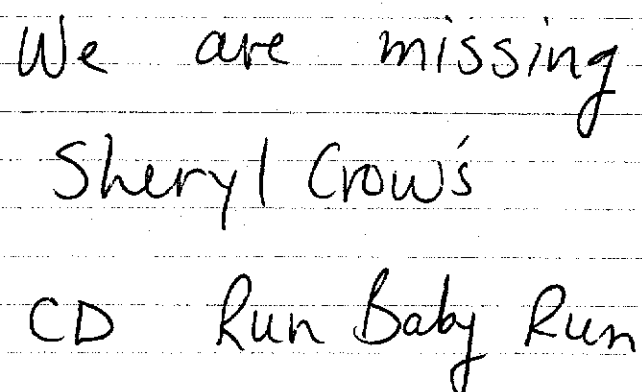 We are missing
Sheryl Crow's
CD Run Baby Run